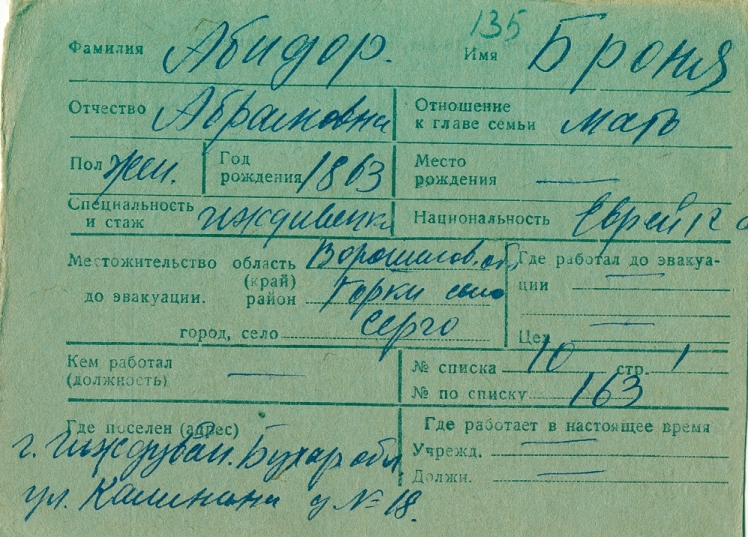 135
Фамилия Абидор. Имя Броня
Отчество Абрамовна Отношение к главе семьи мать
Пол жен. Год рождения 1863 Место рождения —
Специальность и стаж иждивенка Национальность Еврейка
Местожительство область (край) Ворошилов. об. Где работал до эвакуа-
до эвакуации. район Горки село ции —
город, село Серго Цех —
Кем работал (должность) — № списка 10 стр. 1
№ по списку 163
Где поселен (адрес) Где работает в настоящее время
г. Гиждуван. Бухар обл Учрежд. —
ул. Калинина у № 18. Должн. —